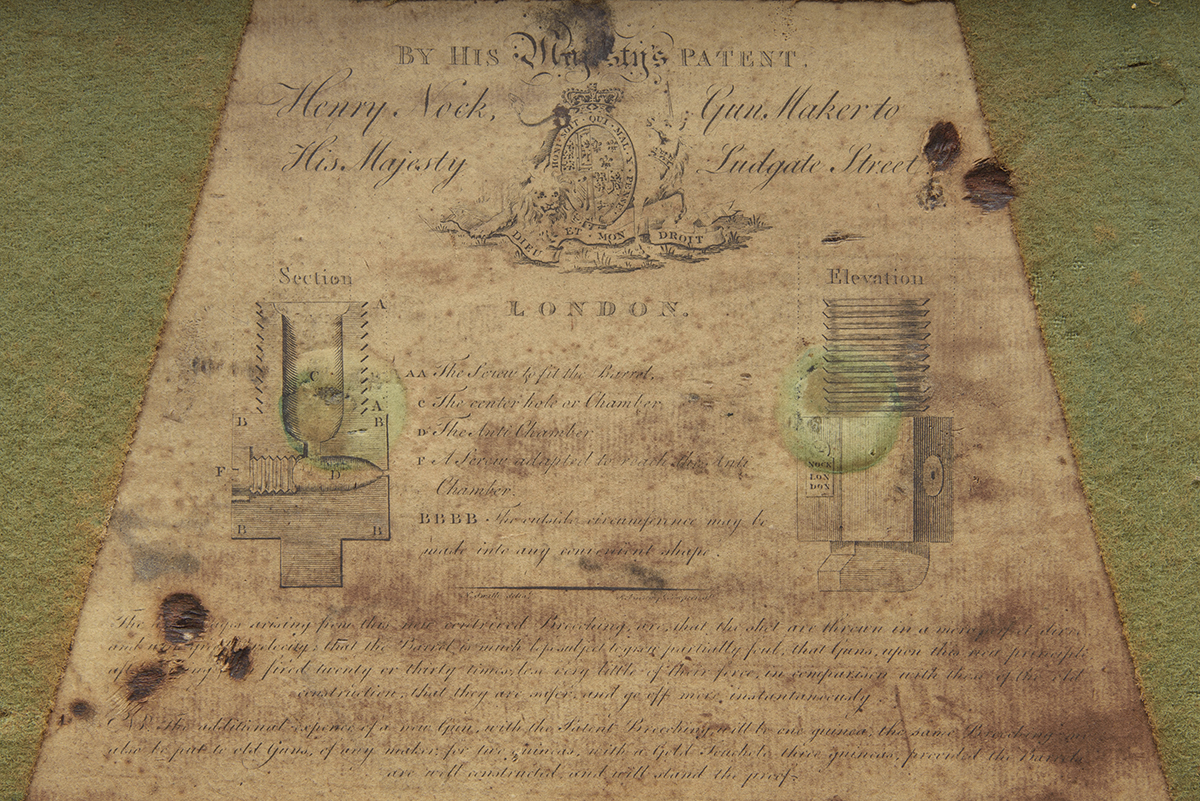 BY HIS Majesty's PATENT.
Henry Nock, Gun Maker to
His Majesty Ludgate Street
HONI SOIT QUI MAL Y PENSE
DIEU ET MON DROIT
LONDON.
Section
A
C
A
B B
F D
B B
Elevation
NOCK
LON
DON
AA The Screw to fit the Barrel.
C The center hole or Chamber
D The Anti Chamber
F A Screw adapted to reach the Anti
Chamber.
BBBB The outside circumference may be
made into any convenient shape.
The arising from this new contrived Breeching, are, that the shot are thrown in a more direct
and velocity; that the Barrel is much less subject to grow partially foul, that Guns, upon this new principle
after being fired twenty or thirty times, lose very little of their force, in comparison with those of the old
construction; that they are safer, and go off more instantaneously.
The additional expence of a new Gun, with the Patent Breeching, will be one guinea, the same Breeching can
also be put to old Guns, of any maker, for two guineas, with a Gold Touchhole three guineas, provided the Barrels
are well constructed, and will stand the proof.